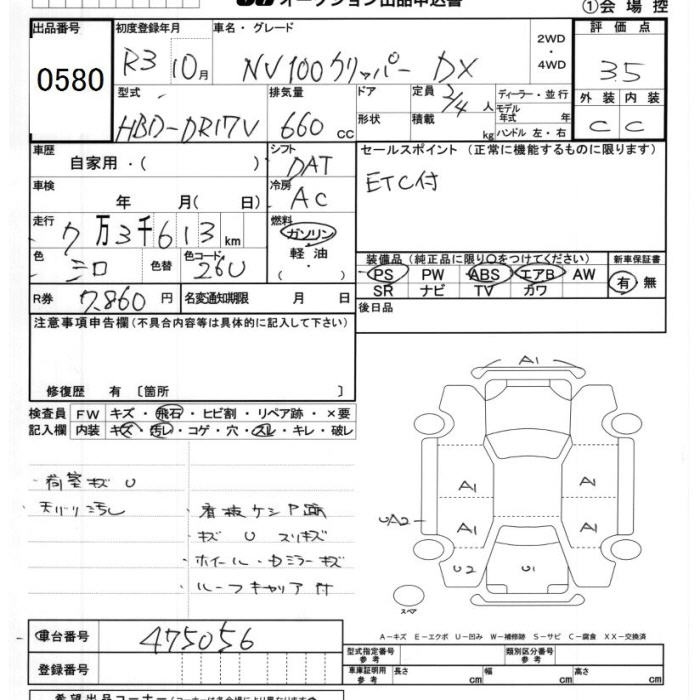 オークション出品申込書 ①会場控
出品番号 初度登録年月 車名・グレード 2WD・4WD 評価点
0580 R3 10月 NV100クリッパー DX 3.5
型式 排気量 ドア 定員 ディーラー・並行 外装 内装
HBD-DR17V 660 cc 形状 2/4 人 モデル年式 年 C C
積載 kg ハンドル 左・右
車歴 シフト セールスポイント (正常に機能するものに限ります)
自家用・( ) DAT ETC付
車検 冷房
年 月( 日) AC
走行 燃料
7万3千613km ガソリン
軽油
色 色替 色コード 装備品 (純正品に限り○をつけてください) 新車保証書
シロ 26U PS PW ABS エアB AW 有・無
SR ナビ TV カワ
R券 7,860円 名変通知期限 月 日 後日品
注意事項申告欄(不具合内容等は具体的に記入して下さい)
修復歴 有 〔箇所 〕
検査員 FW キズ・飛石・ヒビ割・リペア跡・×要
記入欄 内装 キズ・汚レ・コゲ・穴・スレ・キレ・破レ
・荷室キズ U
天バリ汚し
・看板ケシP跡
・キズ U スリキズ
・ホイール・ドミラーキズ
・ルーフキャリア付
A1
A1 A1
A1 A1
UA2
U2 U1
スペア
A-キズ E-エクボ U-凹み W-補修跡 S-サビ C-腐食 XX-交換済
車台番号 475056
型式指定番号 参考 類別区分番号 参考
登録番号 車庫証明用 参考 長さ cm 幅 cm 高さ cm
希望出品コーナー(コーナーは各会場により異なります)